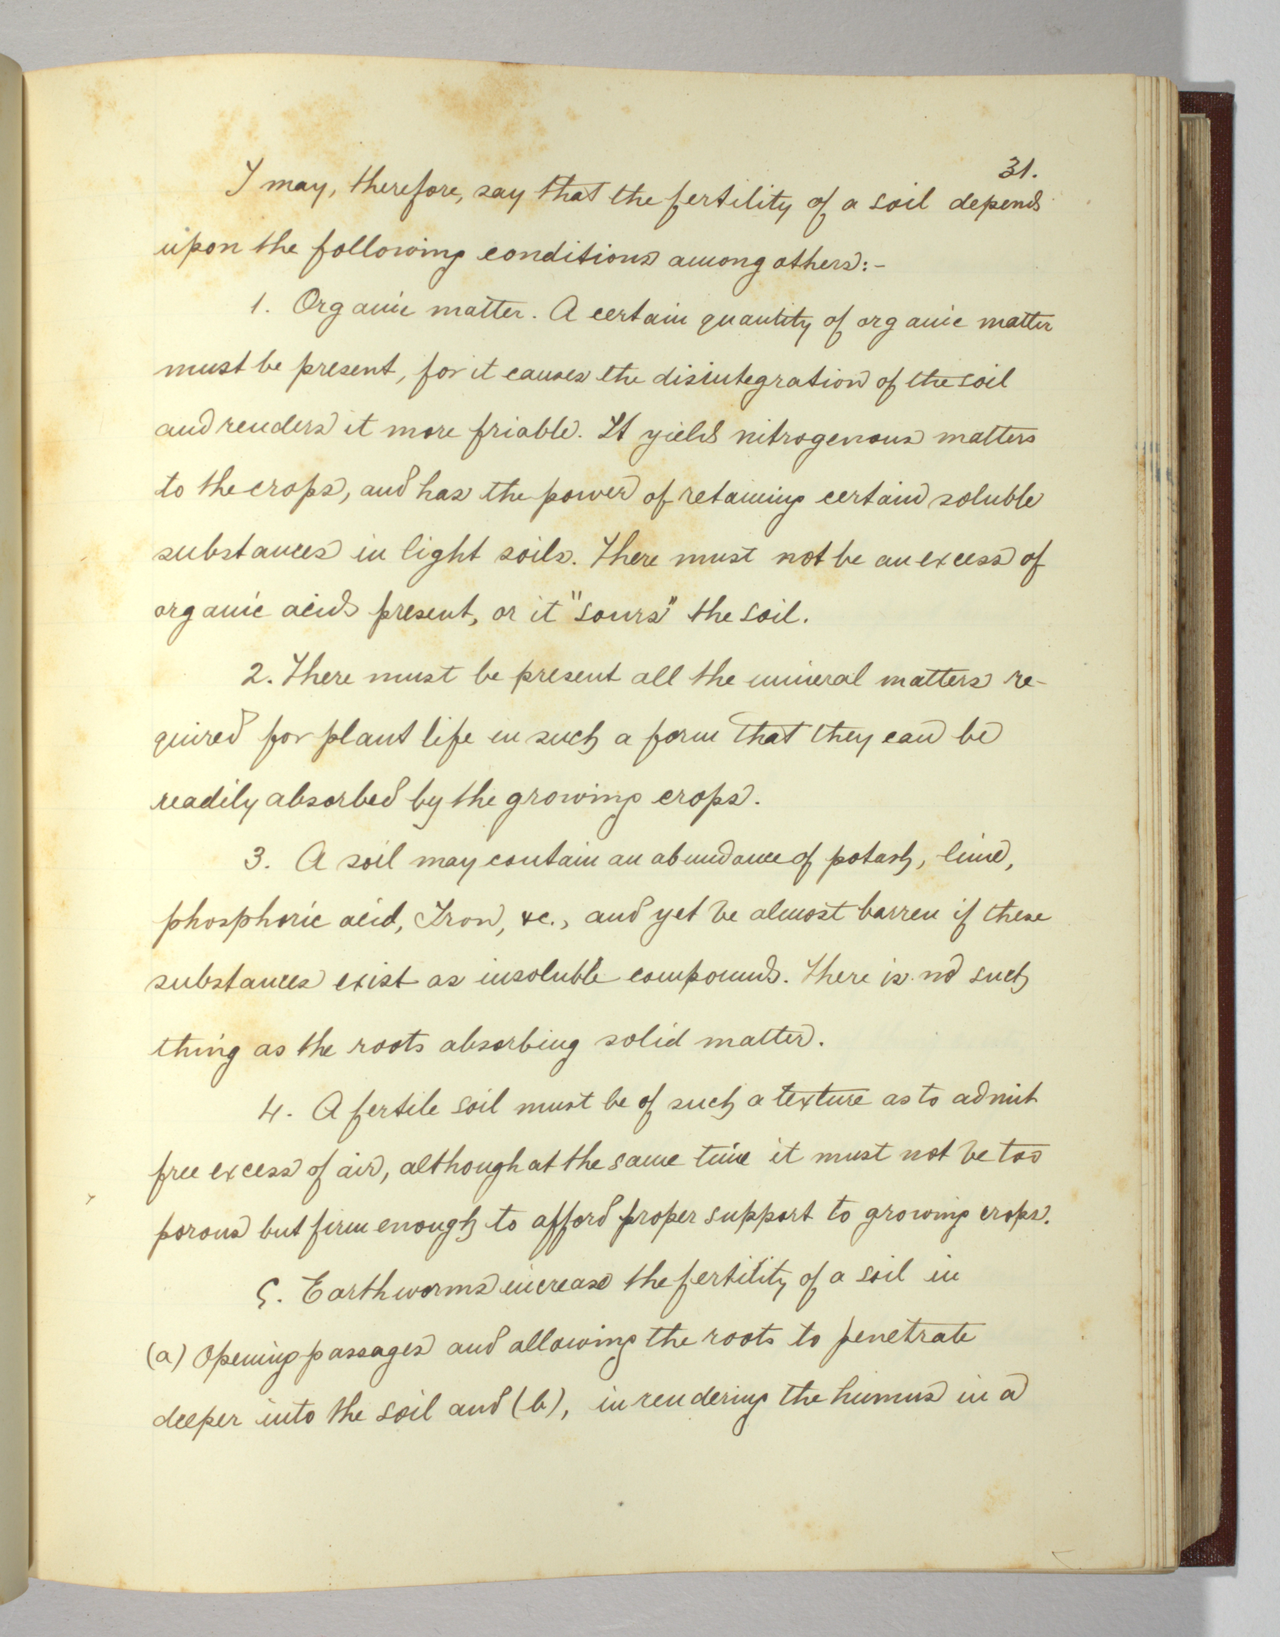 31.
I may, therefore, say that the fertility of a soil depends
upon the following conditions among others:-
1. Organic matter. A certain quantity of organic matter
must be present, for it causes the disintegration of the soil
and renders it more friable. It yields nitrogenous matters
to the crops, and has the power of retaining certain soluble
substances in light soils. There must not be an excess of
organic acids present, or it "sours" the soil.
2. There must be present all the mineral matters re-
quired for plant life in such a form that they can be
readily absorbed by the growing crops.
3. A soil may contain an abundance of potash, lime,
phosphoric acid, Iron, &c., and yet be almost barren if these
substances exist as insoluble compounds. There is no such
thing as the roots absorbing solid matter.
4. A fertile soil must be of such a texture as to admit
free excess of air, although at the same time it must not be too
porous but firm enough to afford proper support to growing crops.
5. Earthworms increase the fertility of a soil in
(a) Opening passages and allowing the roots to penetrate
deeper into the soil and (b), in rendering the humus in a